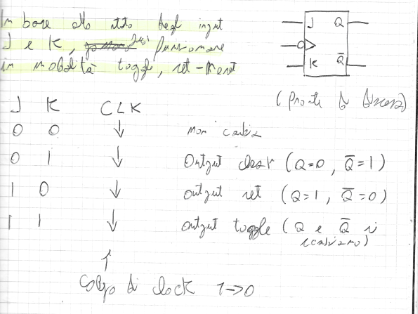 In base allo stato degli input
J e K, può funzionare
in modalità toggle, set-reset
J Q
K Q̅
(fronte di discesa)
J K CLK
0 0 ↓ non cambia
0 1 ↓ Output clear (Q=0, Q̅=1)
1 0 ↓ output set (Q=1, Q̅=0)
1 1 ↓ output toggle (Q e Q̅ si
scambiano)
↑
Colpo di clock 1→0